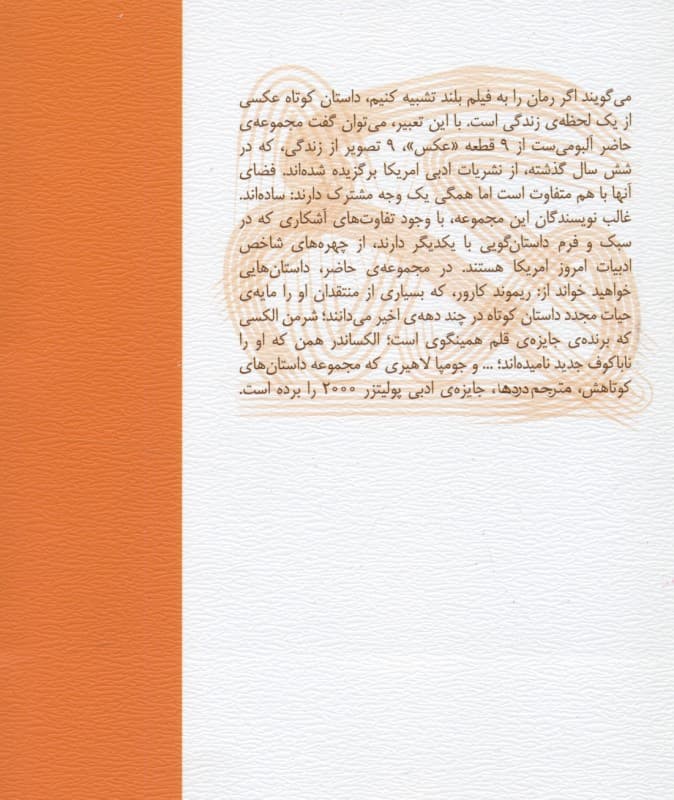 می‌گویند اگر رمان را به فیلم بلند تشبیه کنیم، داستان کوتاه عکسی
از یک لحظه‌ی زندگی است. با این تعبیر، می‌توان گفت مجموعه‌ی
حاضر آلبومی‌ست از ۹ قطعه «عکس»، ۹ تصویر از زندگی، که در
شش سال گذشته، از نشریات ادبی امریکا برگزیده شده‌اند. فضای
آنها با هم متفاوت است اما همگی یک وجه مشترک دارند: ساده‌اند.
غالب نویسندگان این مجموعه، با وجود تفاوت‌های آشکاری که در
سبک و فرم داستان‌گویی با یکدیگر دارند، از چهره‌های شاخص
ادبیات امروز امریکا هستند. در مجموعه‌ی حاضر، داستان‌هایی
خواهید خواند از: ریموند کارور، که بسیاری از منتقدان او را مایه‌ی
حیات مجدد داستان کوتاه در چند دهه‌ی اخیر می‌دانند؛ شرمن الکسی
که برنده‌ی جایزه‌ی قلم همینگوی است؛ الکساندر همن که او را
ناباکوف جدید نامیده‌اند؛ ... و جومپا لاهیری که مجموعه داستان‌های
کوتاهش، مترجم دردها، جایزه‌ی ادبی پولیتزر ۲۰۰۰ را برده است.